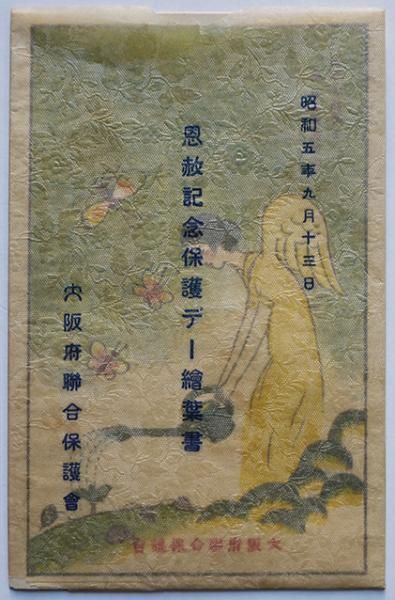 昭和五年九月十三日
恩赦記念保護デー繪葉書
大阪府聯合保護會
大阪府聯合保護會